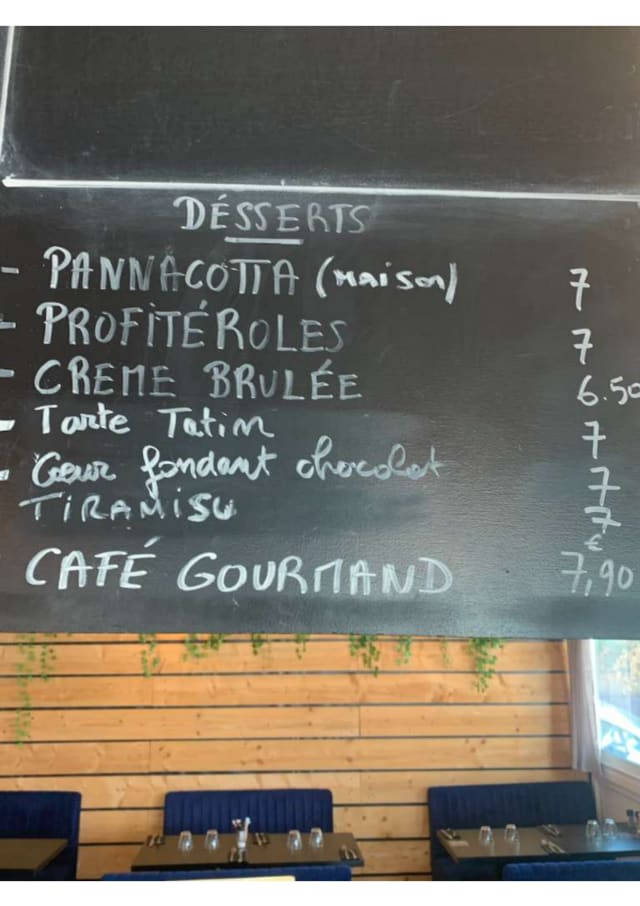 DÉSSERTS
- PANNACOTTA (Maison) 7
- PROFITÉROLES 7
- CREME BRULÉE 6.50
- Tarte Tatin 7
- Cœur fondant chocolat 7
TIRAMISU 7
€
CAFÉ GOURMAND 7,90